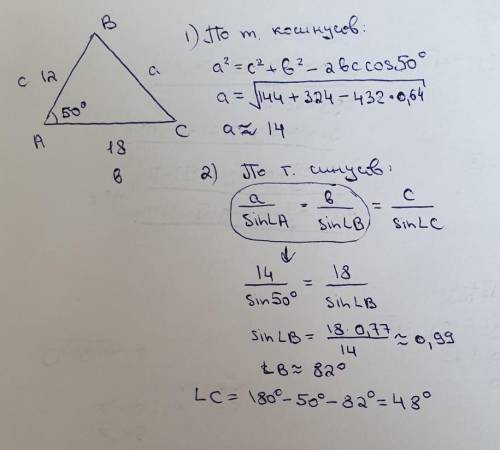 B
c 12 a
50°
A C
18
в
1) По т. косинусов:
a² = c² + в² - 2вc cos50°
a = √144 + 324 - 432 · 0,64
a ≈ 14
2) По т. синусов:
a/sin∠A = в/sin∠B = c/sin∠C
14/sin50° = 18/sin∠B
sin∠B = 18·0,77/14 ≈ 0,99
∠B ≈ 82°
∠C = 180° - 50° - 82° = 48°